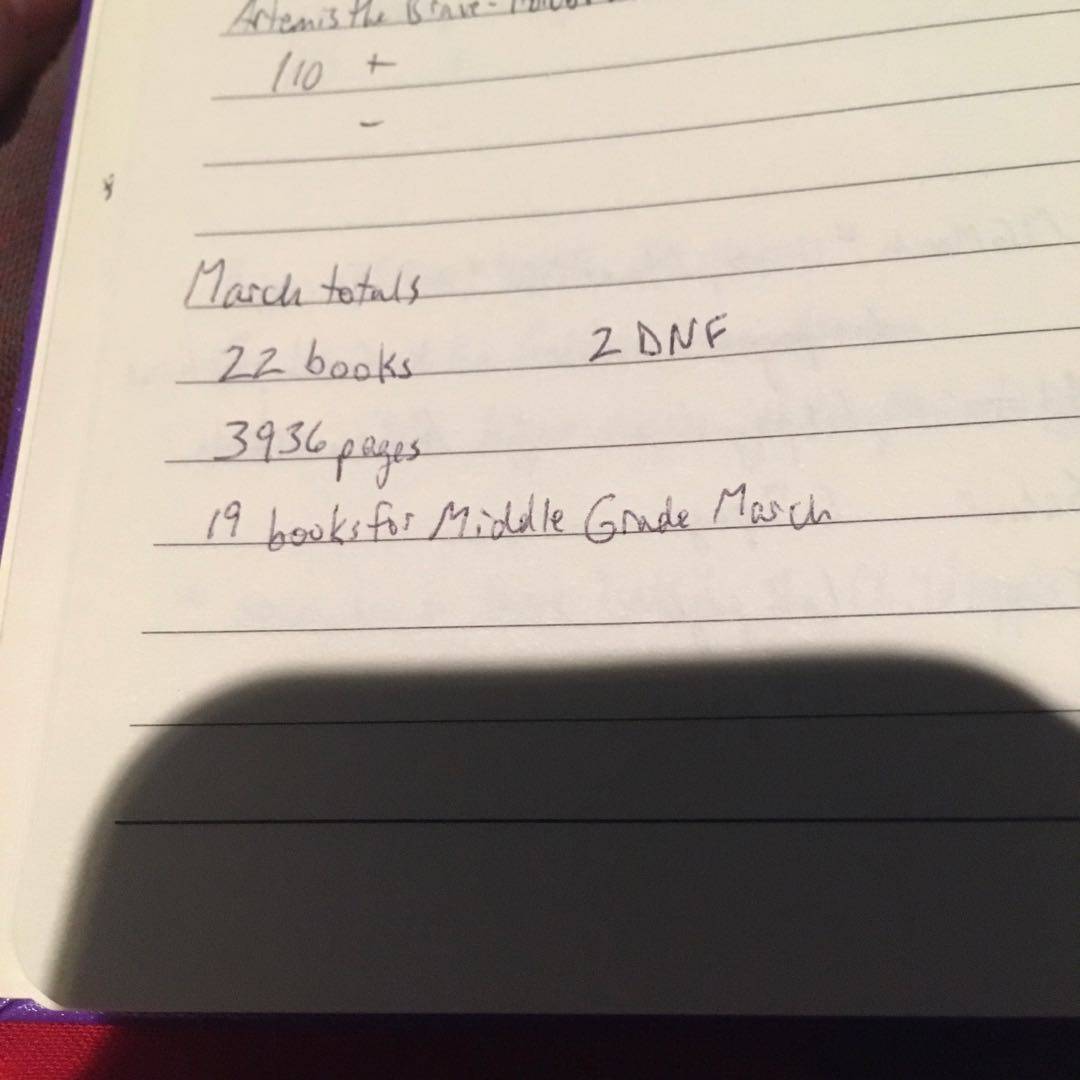 Artemis the Brave -
/10 +
-
March totals
22 books 2 DNF
3936 pages
19 books for Middle Grade March